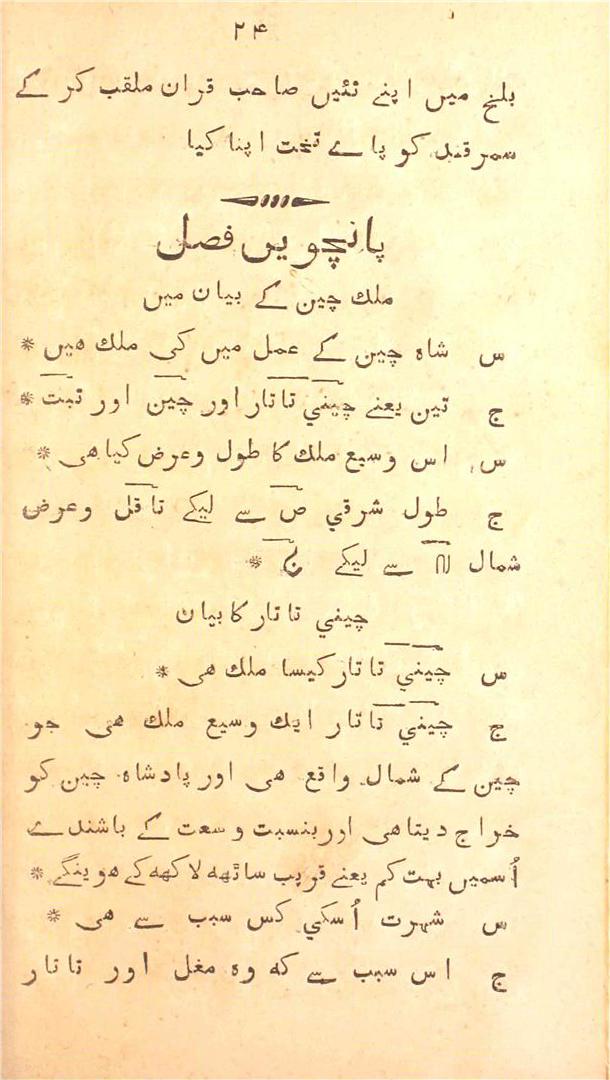 ۲۴
بلخ میں اپنے تئیں صاحب قران ملقب کر کے
سمرقند کو پاے تخت اپنا کیا
پانچویں فصل
ملک چین کے بیان میں
س شاہ چین کے عمل میں کی ملک هیں *
ج تین یعنے چیني تاتار اور چین اور تبت *
س اس وسیع ملک کا طول و عرض کیا هی *
ج طول شرقي ص سے لیکے تا قل و عرض
شمال سے لیکے *
چیني تاتار کا بیان
س چیني تاتار کیسا ملک هی *
ج چیني تاتار ایک وسیع ملک هی جو
چین کے شمال واقع هی اور پادشاہ چین کو
خراج دیتا هی اور بنسبت وسعت کے باشندے
اُسمیں بہت کم یعنے قریب ساٹهہ لاکهہ کے هوینگے *
س شہرت اُسکي کس سبب سے هی *
ج اس سبب سے کہ وہ مغل اور تاتار